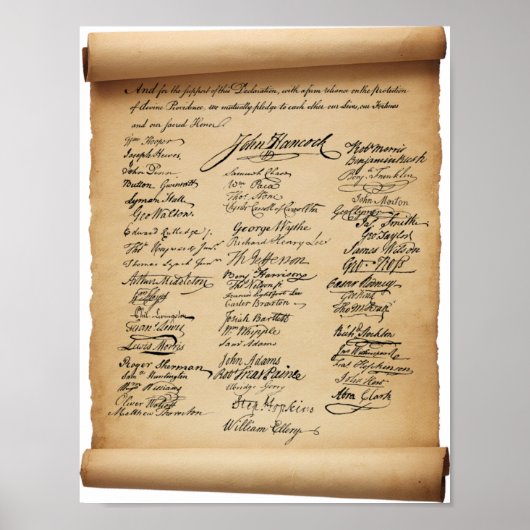 And for the support of this Declaration, with a firm reliance on the Protection
of divine Providence, we mutually pledge to each other our Lives, our Fortunes
and our sacred Honor.
John Hancock
Wm Hooper
Joseph Hewes
John Penn
Button Gwinnett
Lyman Hall
Geo Walton
Edward Rutledge
Thos Heyward Junr
Thomas Lynch Junr
Arthur Middleton
Fran Lewis
Lewis Morris
Roger Sherman
Wm Williams
Oliver Wolcott
Matthew Thornton
Samuel Chase
Wm Paca
Thos Stone
Charles Carroll of
George Wythe
Richard Henry Lee
Th Jefferson
Benj Harrison
Thos Nelson jr
Francis Lightfoot Lee
Carter Braxton
Josiah Bartlett
Wm Whipple
Saml Adams
John Adams
Robt Treat Paine
Elbridge Gerry
Step Hopkins
William Ellery
Robt Morris
Benjamin Rush
Benj Franklin
John Morton
Geo Clymer
Jas Smith
Geo Taylor
James Wilson
Geo Ross
Caesar Rodney
Geo Read
Tho M:Kean
Richd Stockton
Jno Witherspoon
Fras Hopkinson
John Hart
Abra Clark